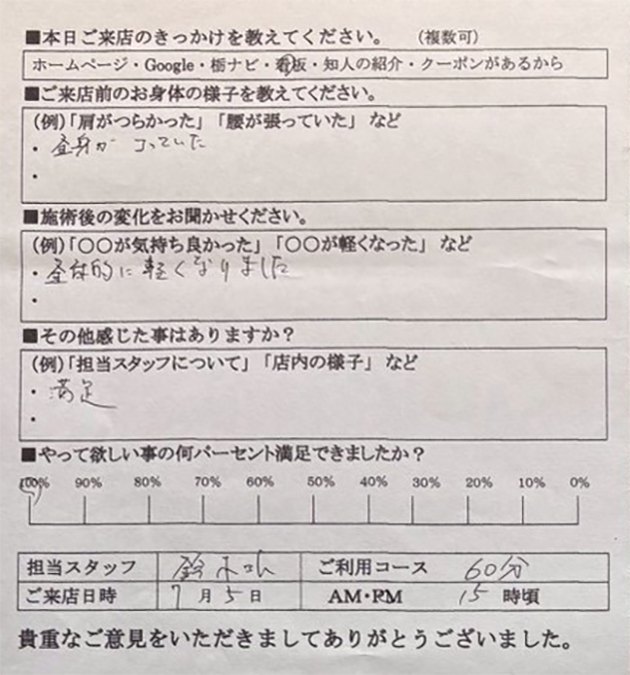 ■本日ご来店のきっかけを教えてください。　（複数可）
ホームページ・Google・栃ナビ・看板・知人の紹介・クーポンがあるから
■ご来店前のお身体の様子を教えてください。
（例）「肩がつらかった」「腰が張っていた」など
・全身が コっていた
・
■施術後の変化をお聞かせください。
（例）「〇〇が気持ち良かった」「〇〇が軽くなった」など
・全体的に軽くなりました
・
■その他感じた事はありますか？
（例）「担当スタッフについて」「店内の様子」など
・満足
・
■やって欲しい事の何パーセント満足できましたか？
100% 90% 80% 70% 60% 50% 40% 30% 20% 10% 0%
担当スタッフ 鈴木さん ご利用コース 60分
ご来店日時 7月5日 AM・PM 15時頃
貴重なご意見をいただきましてありがとうございました。